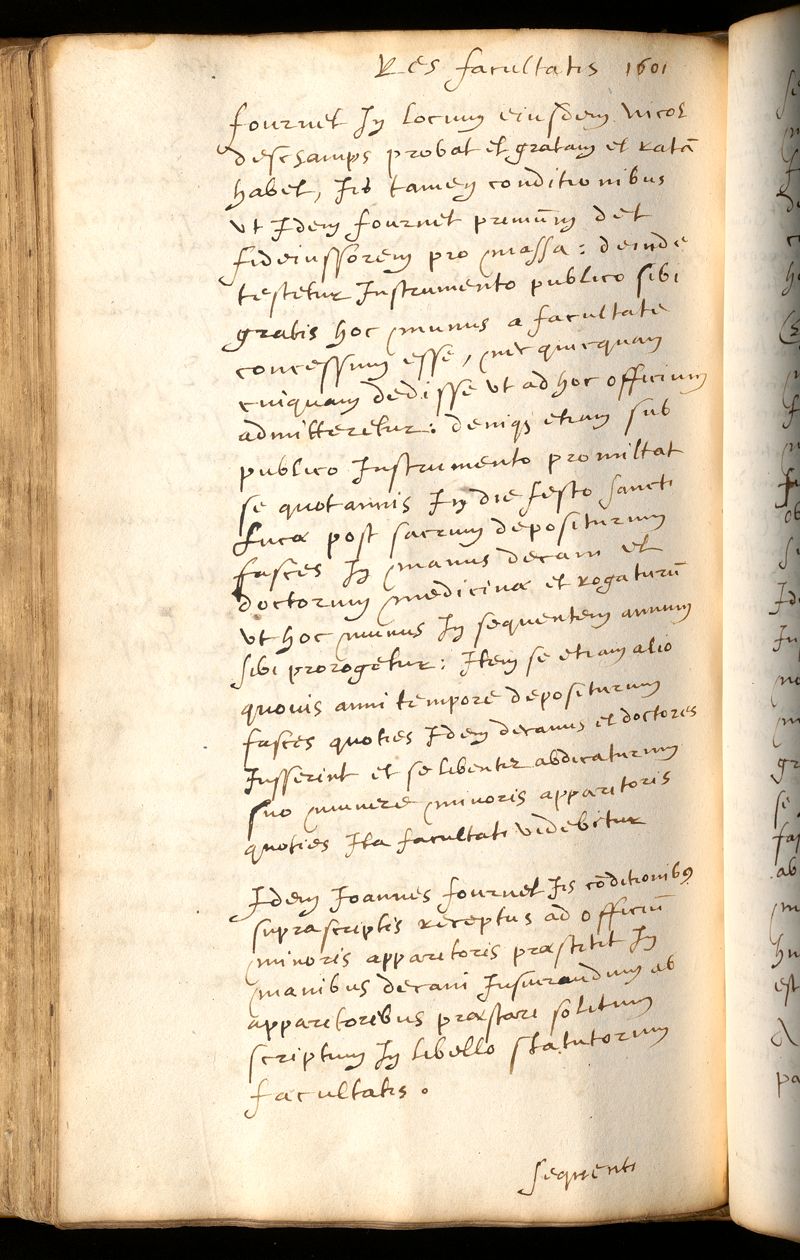 Res facultatis 1601
fournet In locum eiusdem Nicol
deschamps probat et gratam et ratā
habet, Iis tamen conditionibus
vt Idem fournet primūm det
fideiussorem pro massa: deinde
testetur Instrumento publico sibi
gratis hoc munus a facultate
concessum esse, nec quicquam
cuiquam dedisse vt ad hoc officium
admitteretur: deniq; etiam sub
publico Instrumento promittat
se quotannis In die festo sancti
Lucæ post sacrum depositurum
fasces In manus decani et
doctorum medicinæ et rogaturū
vt hoc munus In sequentem annum
sibi prorogetur: Item se etiam alio
quouis anni tempore depositurum
fasces quoties Idem decanus et doctores
Iusserint et se libenter abdicaturum
suo munere minoris apparitoris
quoties Ita facultati videbitur
Idem Ioannes fournet Iis cōditionib9
suprascriptis receptus ad officiū
minoris apparitoris præstitit In
manibus decani Iusiurandum ab
apparitoribus præstari solitum
scriptum In libello statutorum
facultatis.
sequenti